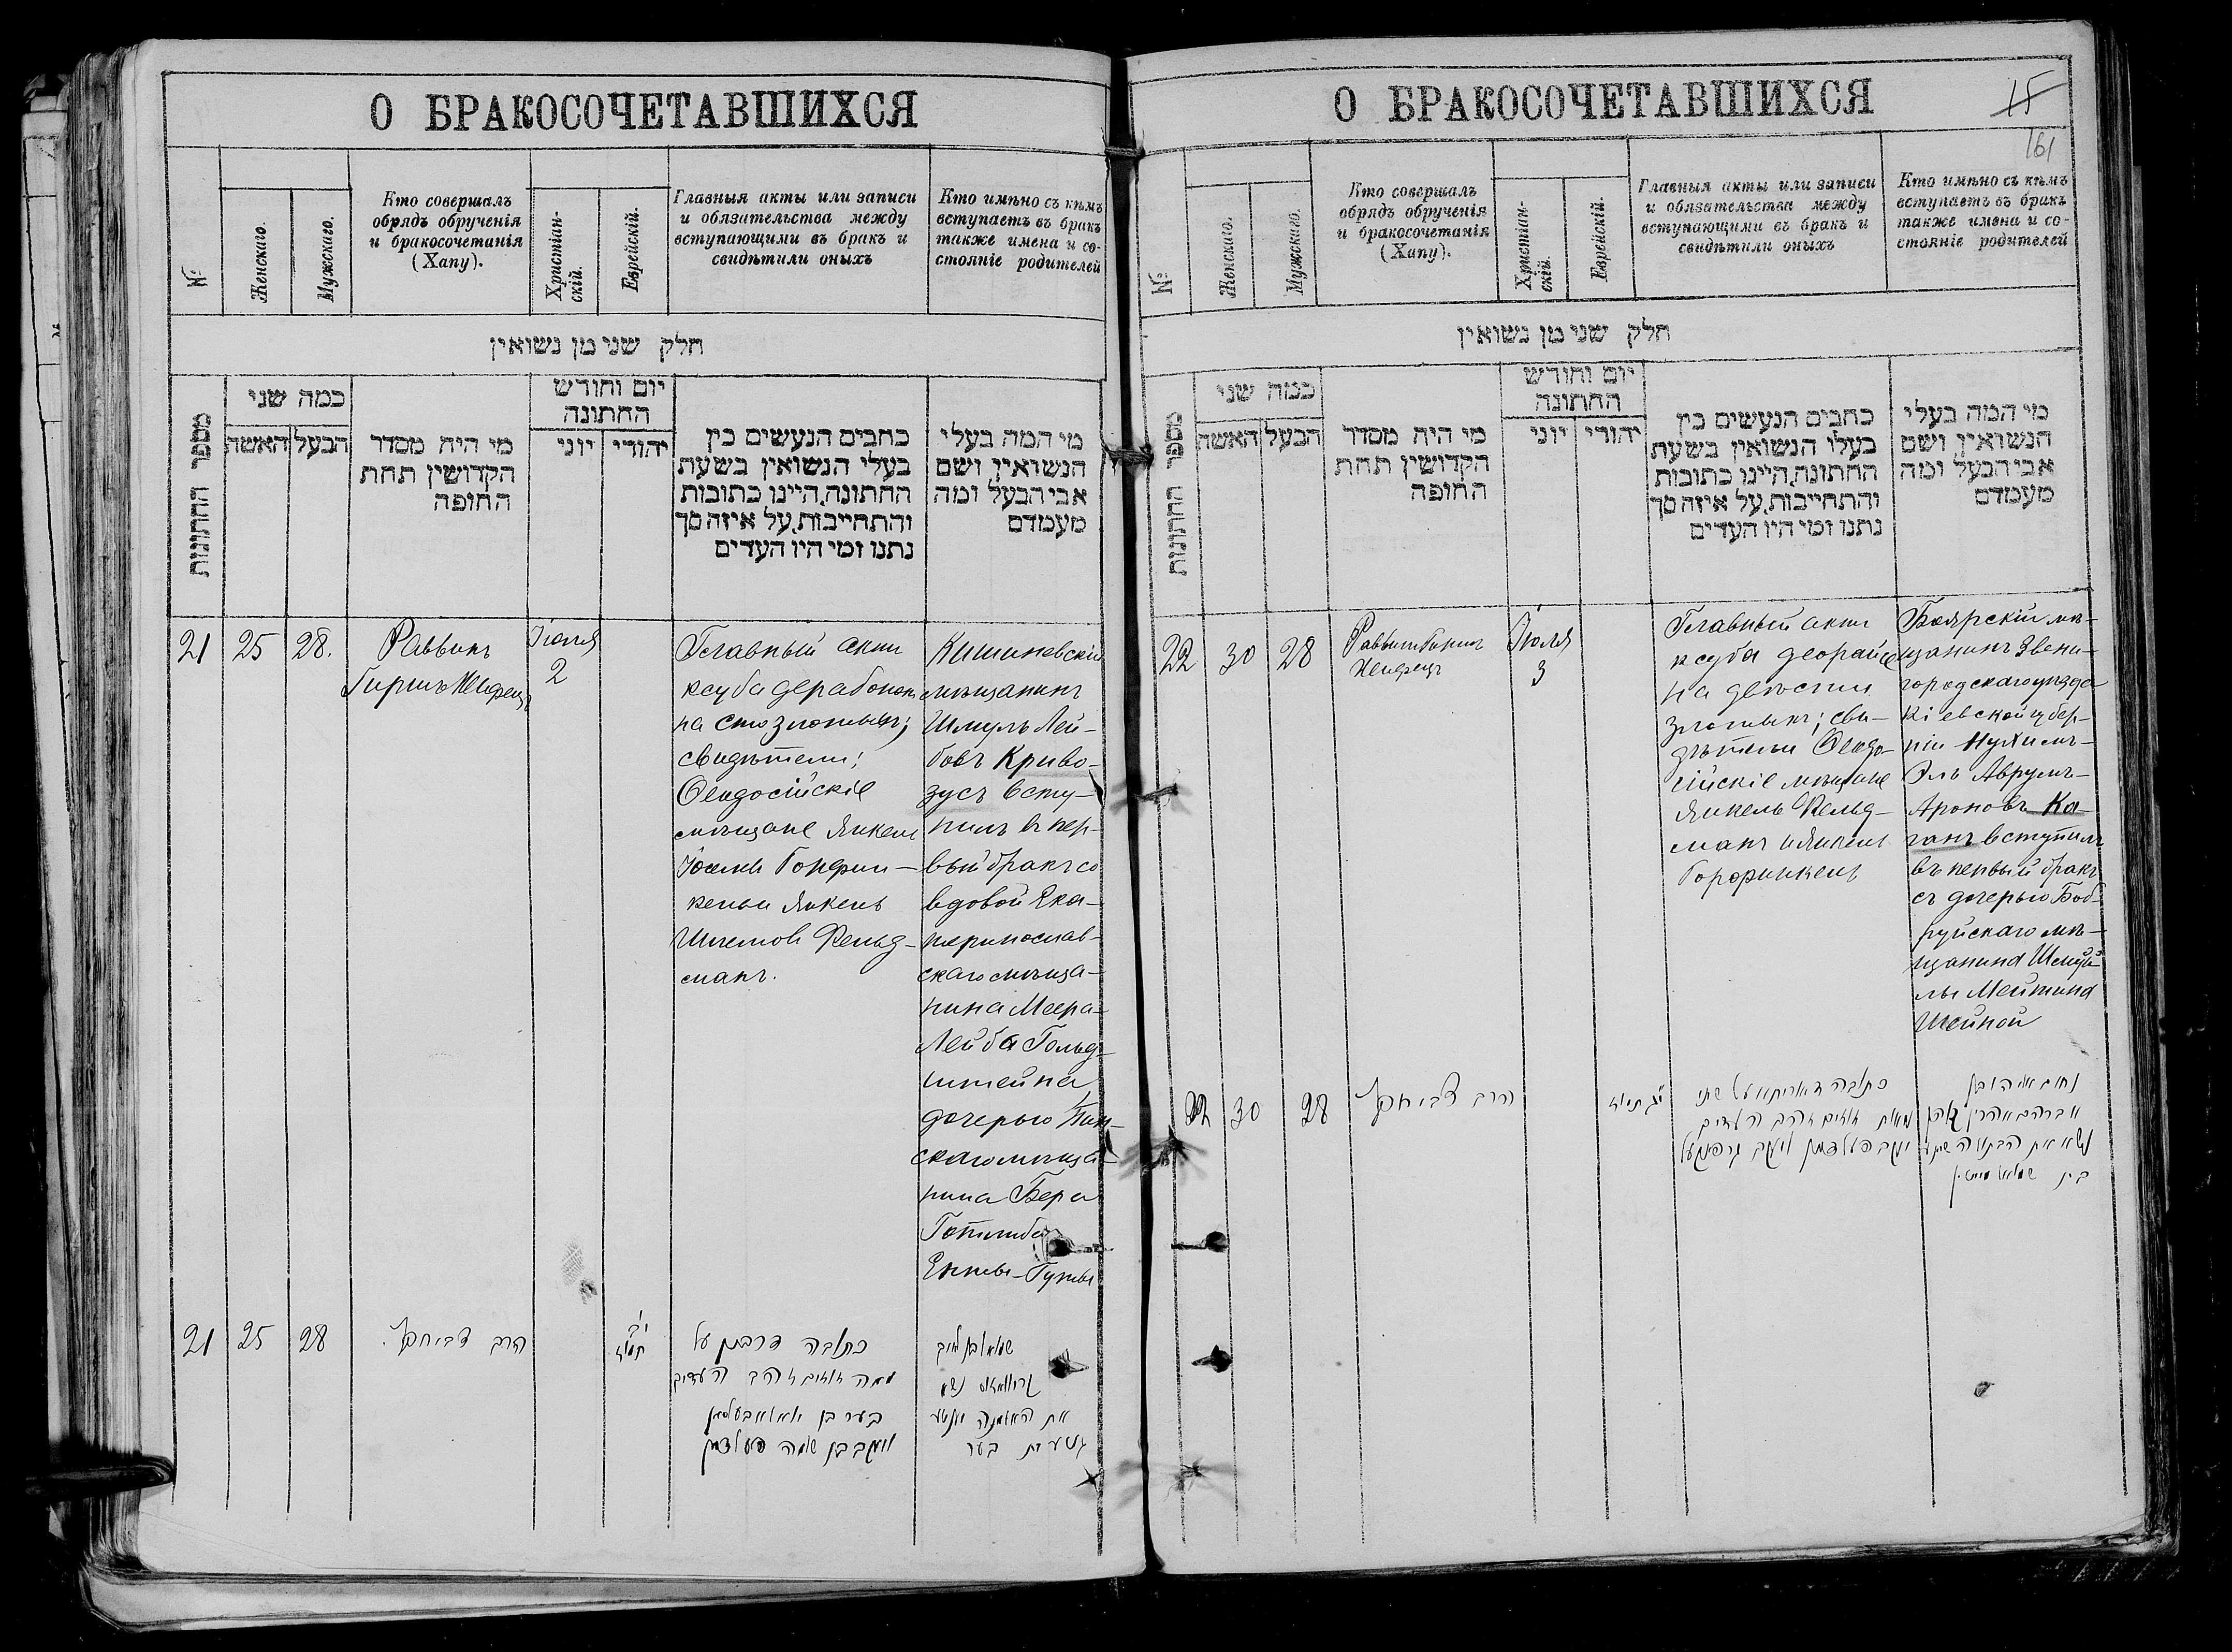 О БРАКОСОЧЕТАВШИХСЯ
№
Женскаго.
Мужскаго.
Кто совершалъ
обрядъ обрученія
и бракосочетанія
(Хапу).
Христіан-
скій.
Еврейскій.
Главныя акты или записи
и обязательства между
вступающими въ бракъ и
свидѣтили оныхъ
Кто имѣно съ кѣмъ
вступаетъ въ бракъ
также имена и со-
стояніе родителей
חלק שני מן נשואין
מספר החתונות
כמה שני
האשה
הבעל
מי היה מסדר
הקדושין תחת
החופה
יום וחודש
החתונה
יוני
יהודי
כתבים הנעשים בין
בעלי הנשואין בשעת
החתונה, היינו כתובות
והתחייבות, על איזה סך
נתנו ומי היו העדים
מי המה בעלי
הנשואין ושם
אבי הבעל ומה
מעמדם
21
25
28.
Раввинъ
Гиршъ Хейфецъ
Іюля
2
Главный актъ
ксуба дерабононъ
на сто злотыхъ;
свидѣтели:
Ѳеодосійскіе
мѣщане Янкель
Шлемовъ Фельд-
манъ.
Кишиневскій
мѣщанинъ
Шмуль Лей-
бовъ Криво-
зусъ всту-
пилъ въ пер-
вый бракъ со
вдовой Ека-
теринослав-
скаго мѣща-
нина Меера-
Лейба Гольд-
штейна
дочерью Пин-
скаго мѣща-
нина Бера
21
25
28
הרב
י״ב
תמוז
כתובה דרבנן על
מאה זוזים זהב העדים
יעקב בן שלמה פעלדמן
שמואל בן לייב
נשא
את האלמנה
בער
О БРАКОСОЧЕТАВШИХСЯ
15
161
№
Женскаго.
Мужскаго.
Кто совершалъ
обрядъ обрученія
и бракосочетанія
(Хапу).
Христіан-
скій.
Еврейскій.
Главныя акты или записи
и обязательства между
вступающими въ бракъ и
свидѣтили оныхъ
Кто имѣно съ кѣмъ
вступаетъ въ бракъ
также имена и со-
стояніе родителей
חלק שני מן נשואין
מספר החתונות
כמה שני
האשה
הבעל
מי היה מסדר
הקדושין תחת
החופה
יום וחודש
החתונה
יוני
יהודי
כתבים הנעשים בין
בעלי הנשואין בשעת
החתונה, היינו כתובות
והתחייבות, על איזה סך
נתנו ומי היו העדים
מי המה בעלי
הנשואין ושם
אבי הבעל ומה
מעמדם
22
30
28
Раввинъ Гиршъ
Хейфецъ
Іюля
3
Главный актъ
ксуба деорайсе
на двѣсти
злотыхъ; сви-
дѣтели Ѳеодо-
сійскіе мѣщане
Янкель Фельд-
манъ и Янкель
Боярскій мѣ-
щанинъ Звени-
городскаго уѣзда
Кіевской губер-
ніи Нухимъ-
Эль Аврумъ-
Ароновъ Ка-
ганъ вступилъ
въ первый бракъ
съ дочерью Боб-
руйскаго мѣ-
щанина Шмуй-
лы Мейтина
Шейной
22
30
28
הרב
י״ג תמוז
כתובה דאורייתא על שתי
מאות זוזים זהב העדים
יעקב פעלדמן ויעקב
אברהם אהרן כהן
נשא את הבתולה